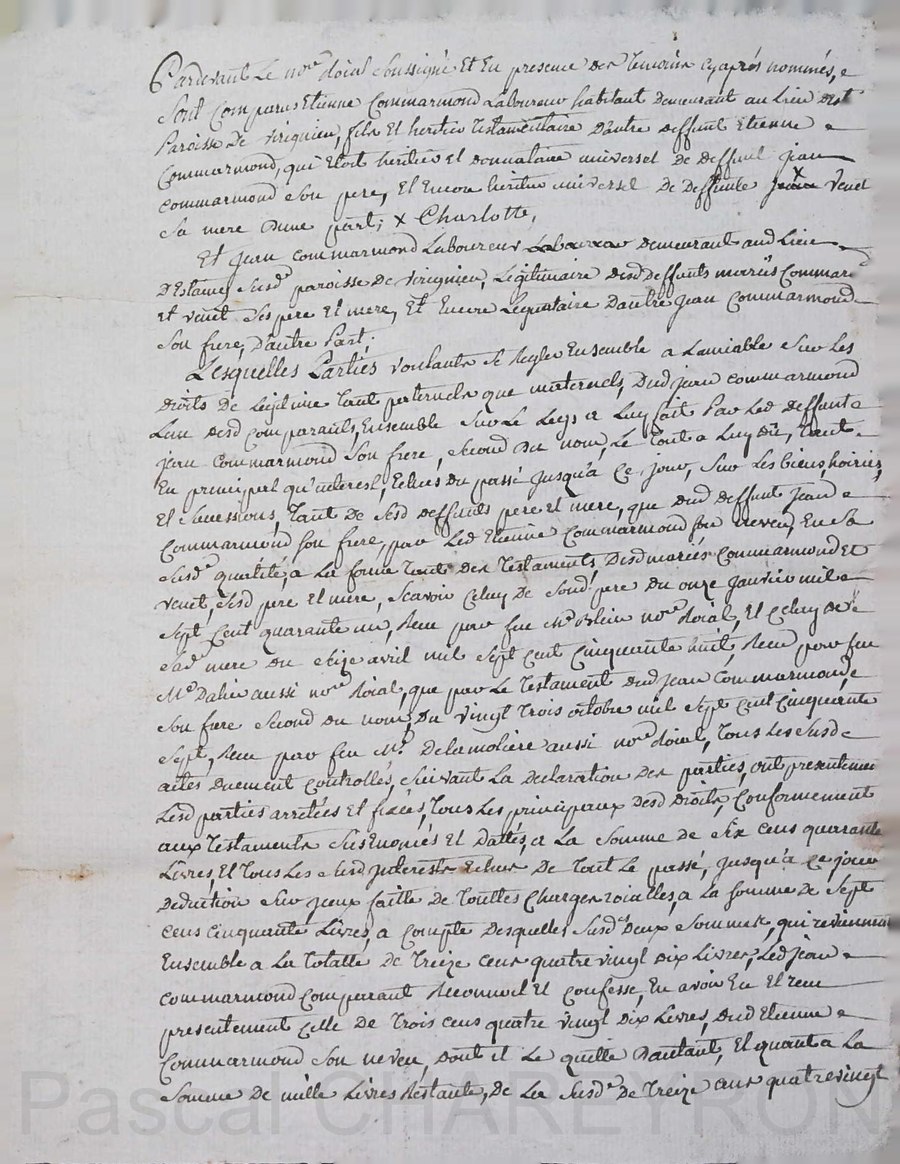 Pardevant Le no.re Roial soussigné Et En presence des Temoins cy aprés nommés,
Sont Comparus Etienne Commarmond Laboureur habitant demeurant au Lieu dest
Paroisse De virignieu, fils Et heritier Testamentaire Dautre deffunt Etienne
Commarmond, qui Etoit heritier et donnataire universel de deffunt jean
commarmond Son pere, Et Encore heritier universel De deffunte jeanne x venet
Sa mere Dune part; x Charlotte,
Et jean commarmond Laboureur Laboureur demeurant aud Lieu
D'Estaimé Susd.e paroisse De virignieu, Legitimaire desd Deffunts mariés Commard
et venet Ses pere Et mere, Et Encore Legataire Dautre jean Commarmond
Son frere, Dautre Part;
Lesquelles Parties voulants Se Regler Ensemble a Lamiable Sur Les
Droits De Legitime Tant paternels que maternels, Dud jean commarmond
Lun desd comparants, Ensemble Sur Le Legs a Luy fait Par Led deffunt
jean Commarmond Son frere, Second du nom, Le Tout a Luy Dû, Tant
En principal qu'interest, Echus du passé jusqu'à Ce jour, Sur Les biens, hoiries,
Et Successions, Tant De Sesd deffunts pere et mere, que dud deffunt jean
Commarmond Son frere, par Led Etienne Commarmond Son neveu, En Sa
Susd.e qualité, a La forme Tant des Testaments Desd mariés Commarmond Et
venet, Sesd pere Et mere, Scavoir Celuy De Sond. pere du onze janvier mil
Sept Cent quarante un, Recu par feu M.e Blein no.re Roial, Et Celuy de
Sad.e mere du Seize avril mil Sept Cent Cinquante huit, Recu par feu
M.e Dahier aussi no.re Roial, que par Le Testament dud jean Commarmond,
Son frere Second du nom, Du vingt Trois octobre mil Sept Cent Cinquante
Sept, Recu par feu M.e Delamoliere aussi no.re Roial, Tous Les Susd
actes duement Controllés, Suivant La declaration Des parties, ont presentemen
Lesd parties arretées Et fixées, Tous Les principaux desd Droits, Conformement
aux Testaments Susenoncés Et Dattés, a La Somme de Six Cens quarante
Livres, Et Tous Les Susd jnterests Echus De Tout Le passé, jusqu'à Ce jour
Deduction Sur jceux faitte de Touttes Charges roialles, a La Somme de Sept
Cens cinquante Livres, a Compte Desquelles Susd.es Deux Sommes, qui reviennent
Ensemble a La Totalle De Treize Cens quatre vingt Dix Livres, Led jean
commarmond Comparant Reconnoit Et Confesse, En avoir Eu Et recu
presentement Celle De Trois Cens quatre vingt Dix Livres, dud Etienne
Commarmond Son neveu, Dont il Le quitte Dautant, Et quant a La
Somme De mille Livres Restante, De La Susd.e De Treize Cens quatre vingt
Pascal CHAREYRON